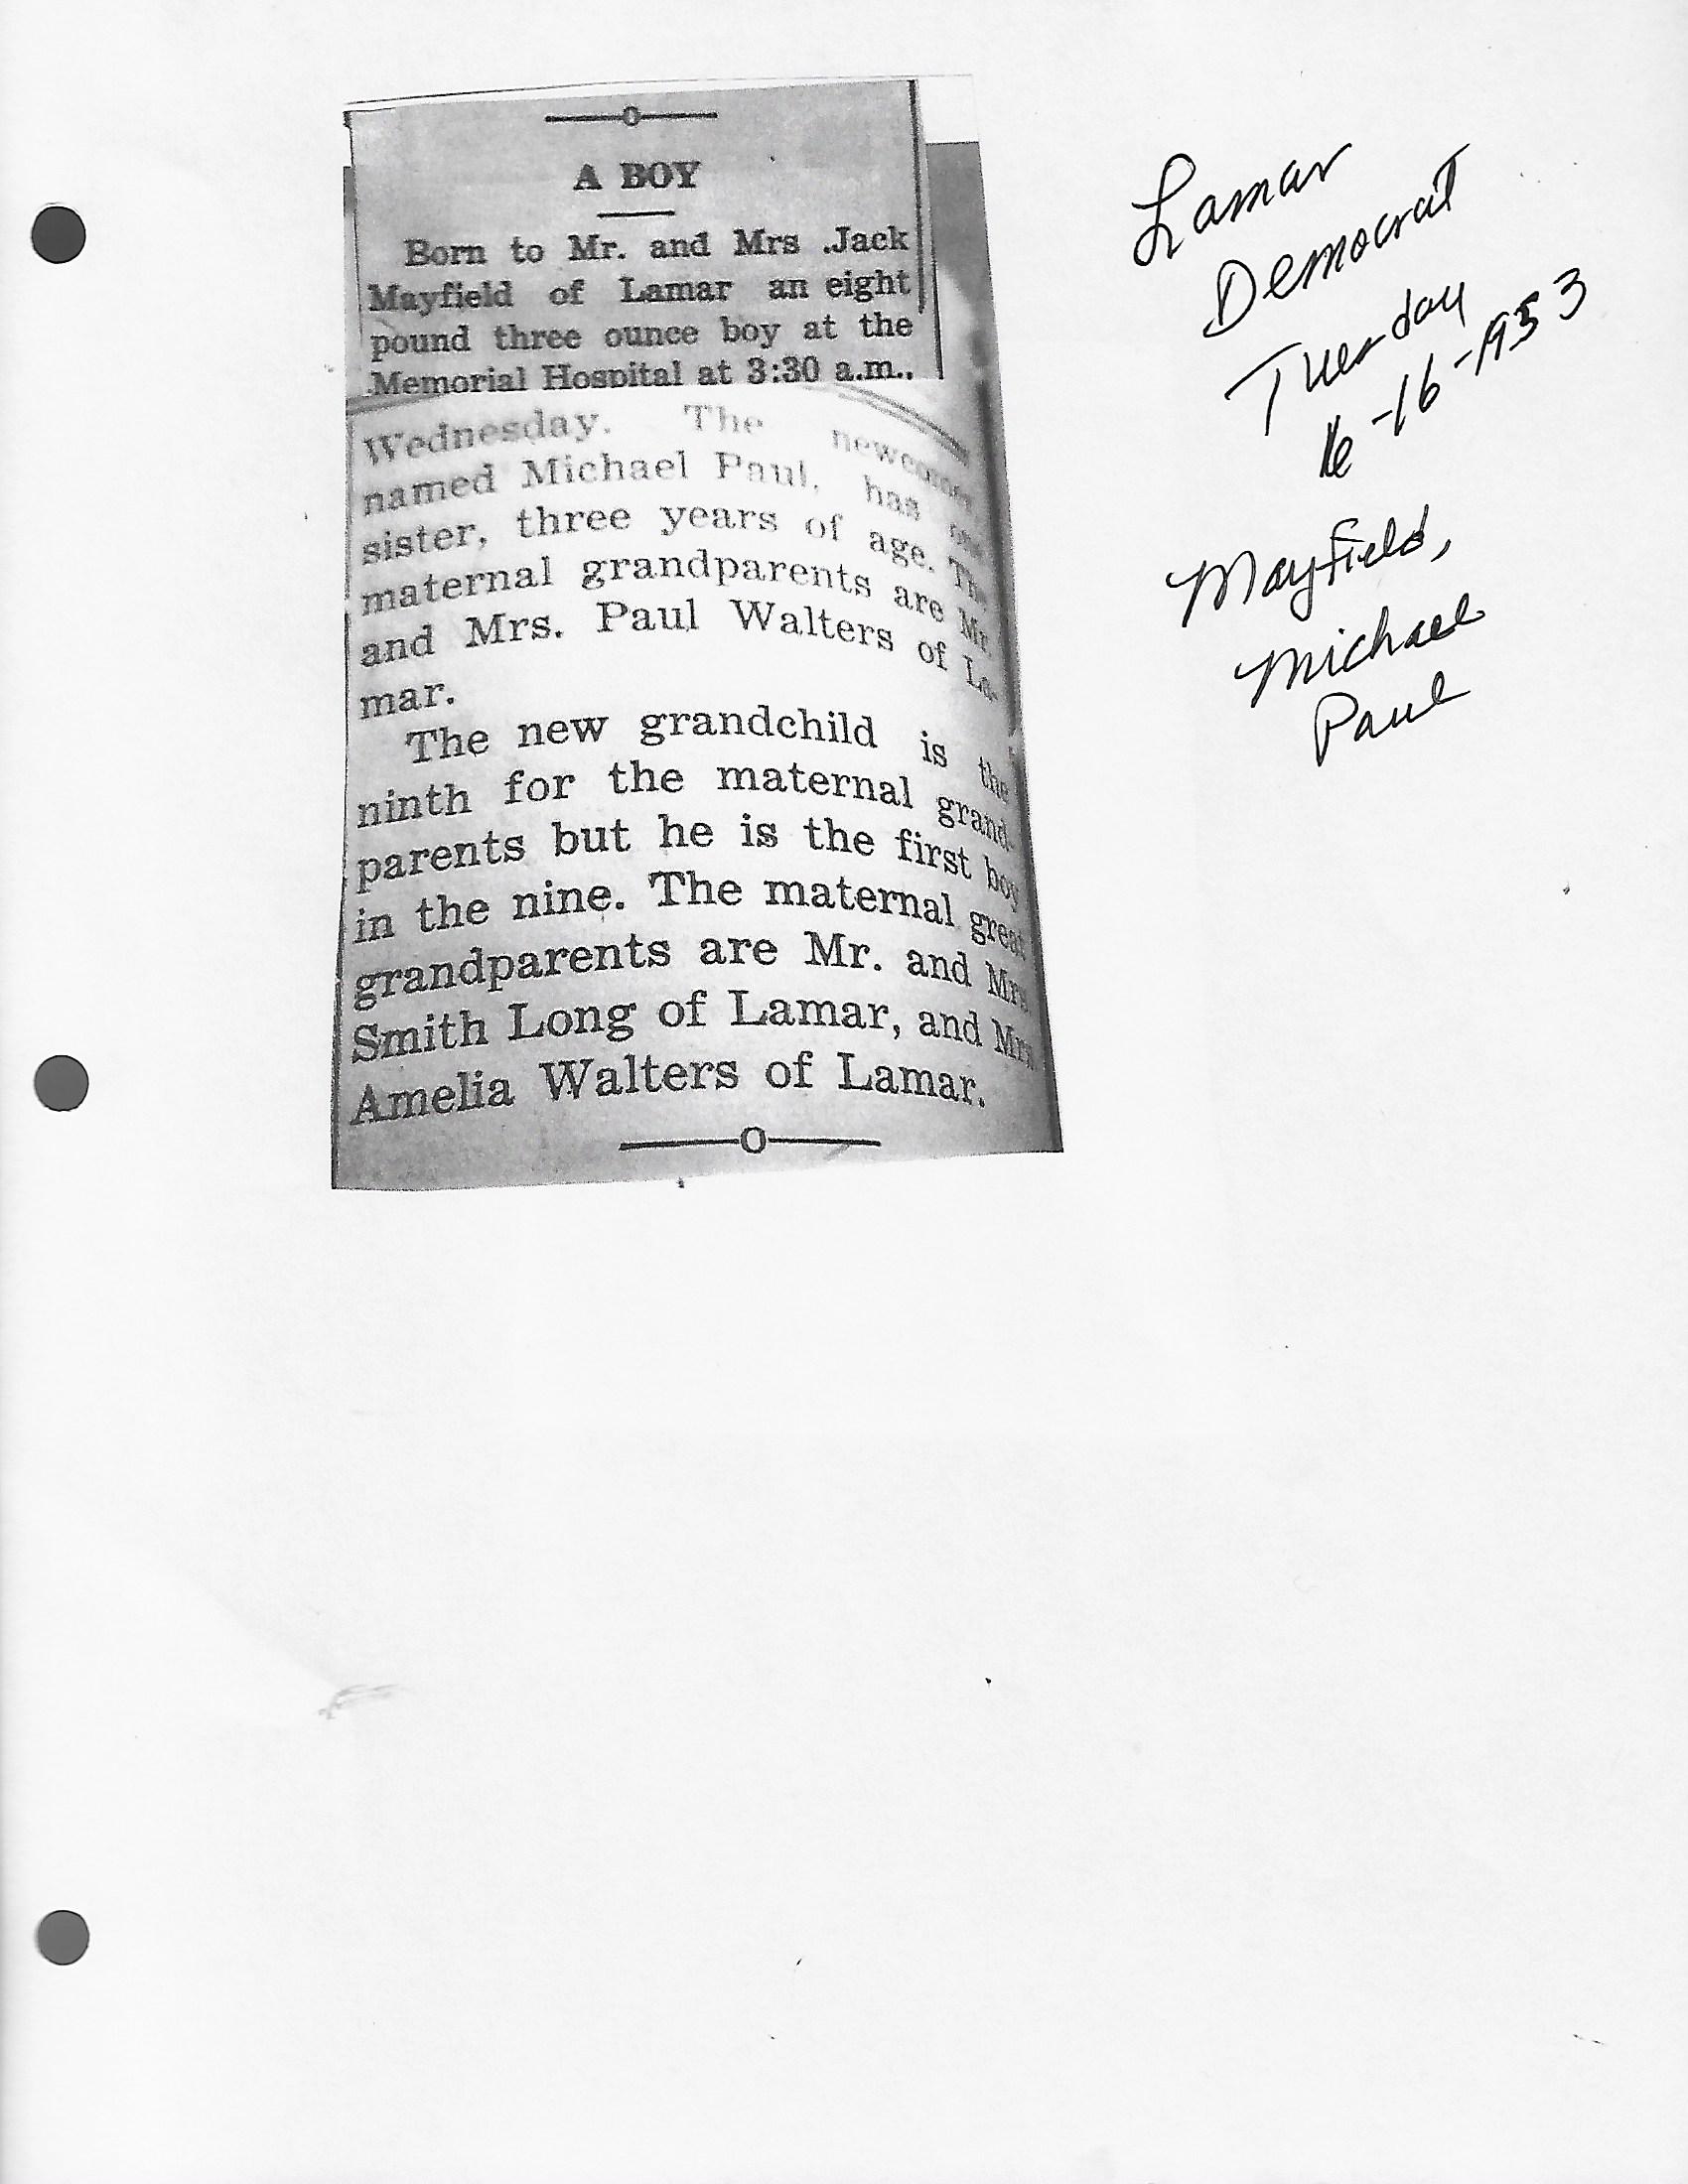 A BOY
Born to Mr. and Mrs .Jack
Mayfield of Lamar an eight
pound three ounce boy at the
Memorial Hospital at 3:30 a.m.,
Wednesday. The newcomer,
named Michael Paul, has one
sister, three years of age. The
maternal grandparents are Mr.
and Mrs. Paul Walters of La-
mar.
The new grandchild is the
ninth for the maternal grand-
parents but he is the first boy
in the nine. The maternal great
grandparents are Mr. and Mrs.
Smith Long of Lamar, and Mrs.
Amelia Walters of Lamar.
Lamar
Democrat
Tuesday
6-16-1953
Mayfield,
Michael
Paul